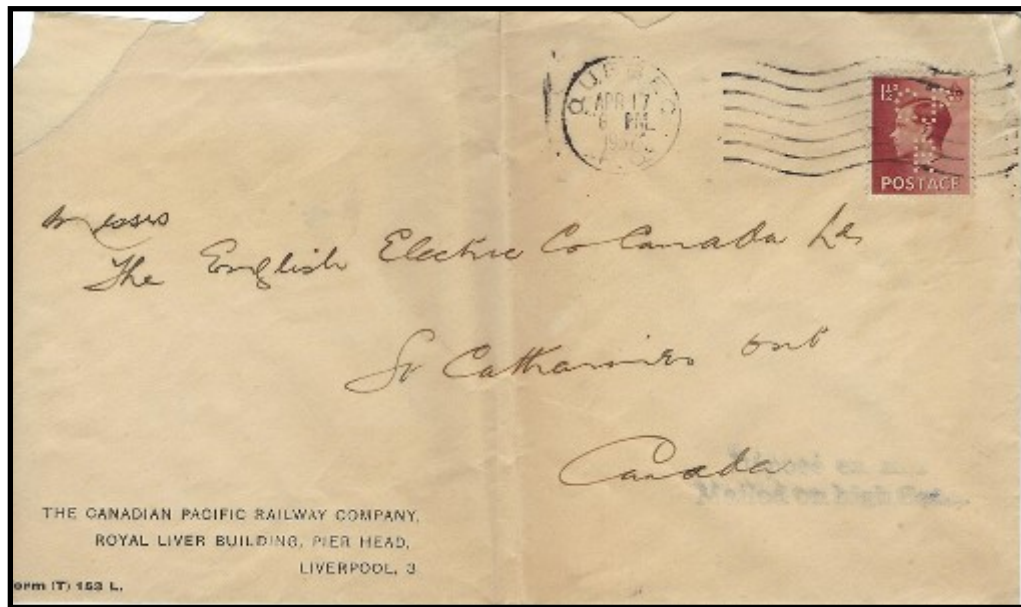 QUEBEC
APR 17
6 PM
1937
1½D
POSTAGE
Messrs
The English Electric Co Canada Ld
St Catharines Ont
Canada
Déposé en
Mailed on High Seas
THE CANADIAN PACIFIC RAILWAY COMPANY,
ROYAL LIVER BUILDING, PIER HEAD,
LIVERPOOL, 3
orm (T) 153 L.